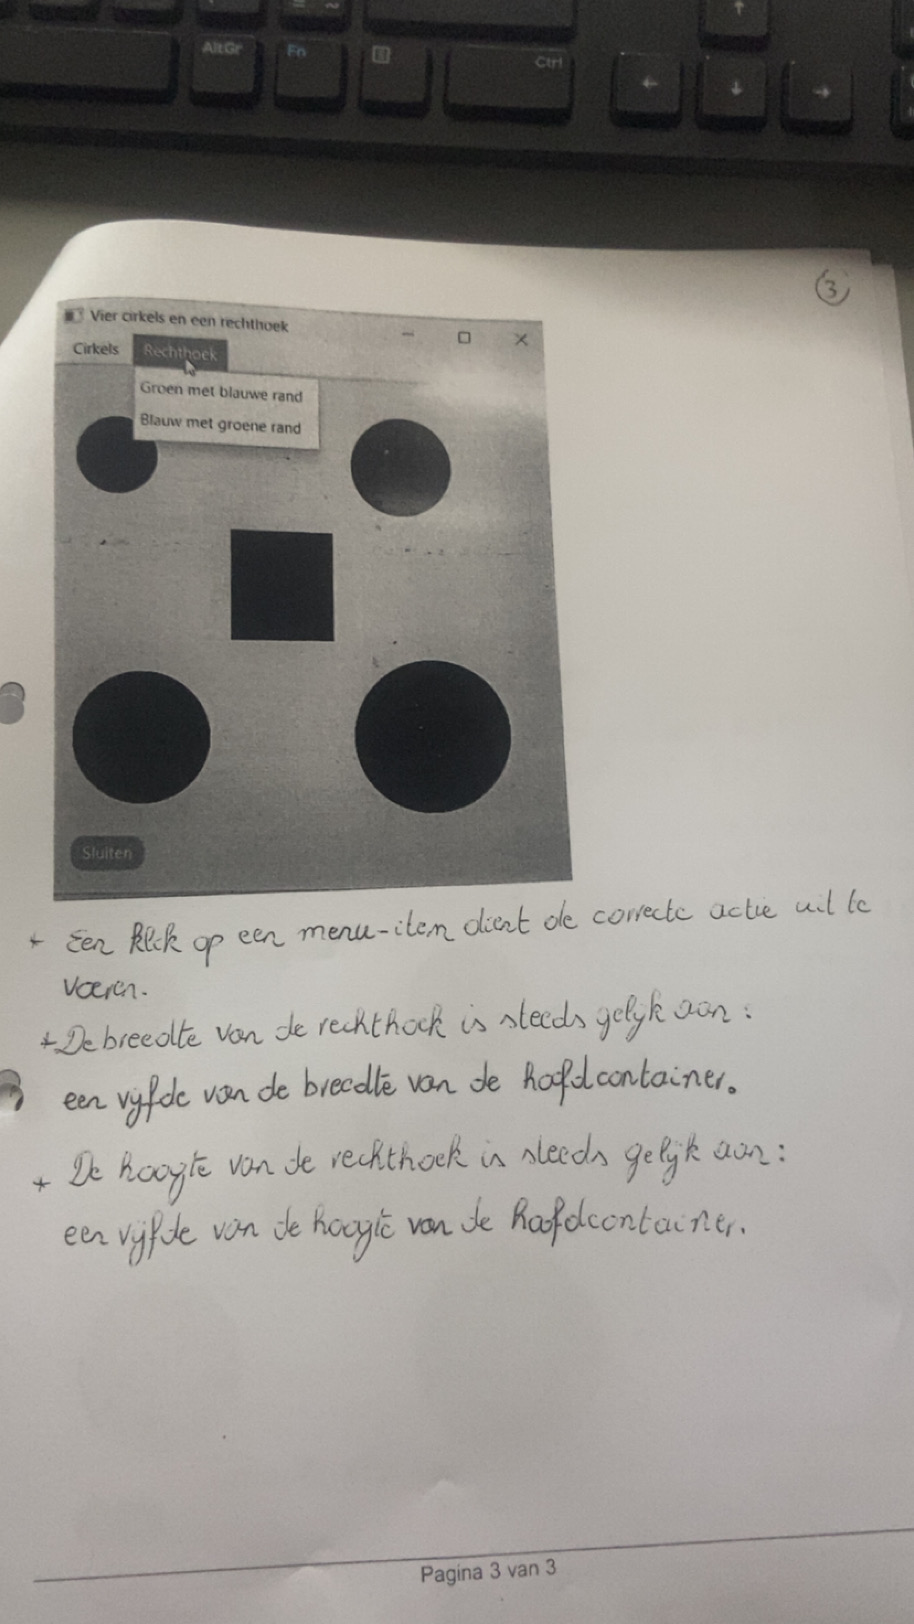 AltGr
Fn
Ctrl
3
Vier cirkels en een rechthoek
Cirkels Rechthoek
Groen met blauwe rand
Blauw met groene rand
Sluiten
* Een klik op een menu-item dient de correcte actie uit te
voeren.
* De breedte van de rechthoek is steeds gelijk aan :
een vijfde van de breedte van de hoofdcontainer.
* De hoogte van de rechthoek is steeds gelijk aan :
een vijfde van de hoogte van de hoofdcontainer.
Pagina 3 van 3